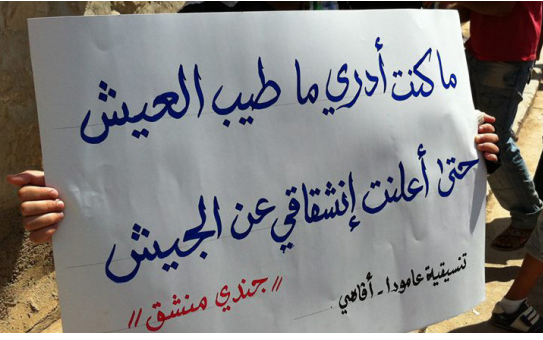 ما كنت أدري ما طيب العيش
حتى أعلنت إنشقاقي عن الجيش
// جندي منشق //
تنسيقية عامودا - أفاهي